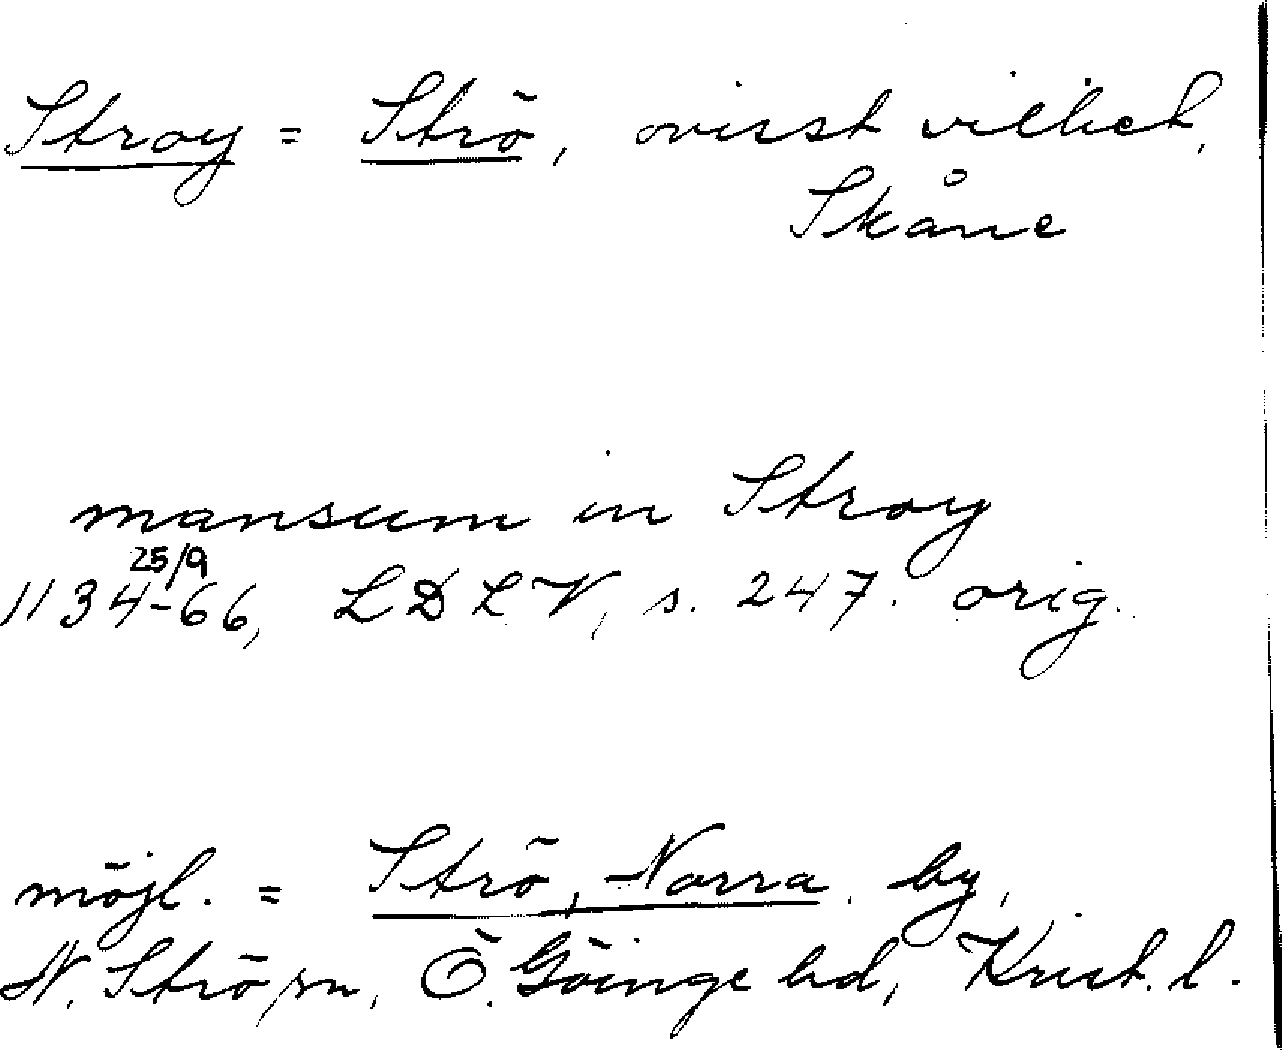 Stroy = Strö, ovisst vilket,
Skåne
mansum in Stroy
25/9
1134-66, LDLV, s. 247. orig.
möjl. = Strö, Norra, by,
N. Strö sn, Ö. Göinge hd, Krist. l.